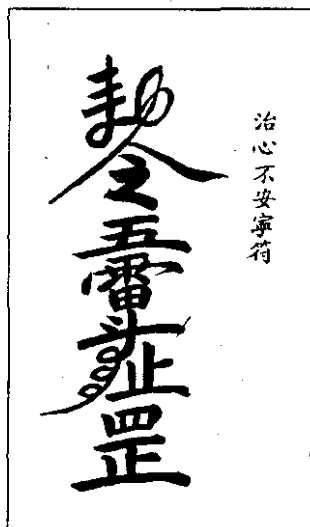 治心不安寧符
勅令五雷斗止罡